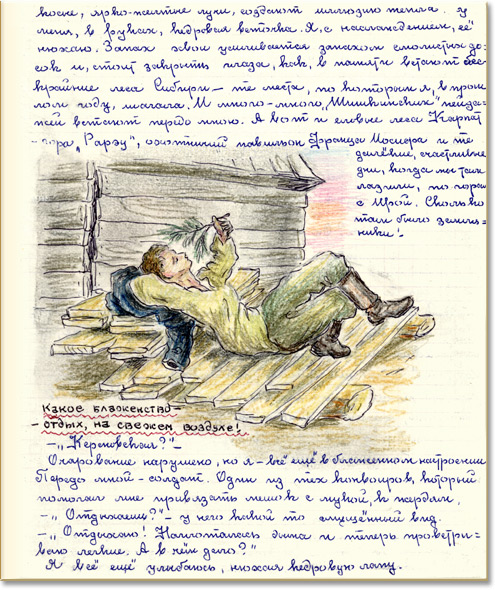 косые, ярко-желтые лучи, создают иллюзию тепла. У
меня, в руках, кедровая веточка. Я, с наслаждением, её
нюхаю. Запах хвои усиливается запахом смолистых до-
сок и, стоит закрыть глаза, как, в памяти встают бес-
крайние леса Сибири – те места, по которым я, в прош-
лом году, шагала. И много-много „Шишкинских" пейза-
жей встают передо мною. А вот и еловые леса Карпат
– гора „Рарэу", охотничий павильон Франца Иосифа и те
далёкие, счастливые
дни, когда мы там
лазили, по горам
с Ирой. Сколько
там было земля-
ники!
Какое блаженство –
– отдых, на свежем воздухе!
– „Керсновская?" –
Очарование нарушено, но я – всё ещё в блаженном настроении.
Передо мной – солдат. Один из тех конвоиров, который
помогал мне привязать мешок с мукой, к жердям.
– „Отдыхаешь?" – у него какой то смущённый вид.
– „Отдыхаю! Наглоталась дыма и теперь проветри-
ваю легкие. А в чём дело?"
Я всё ещё улыбаюсь, нюхая кедровую лапу.